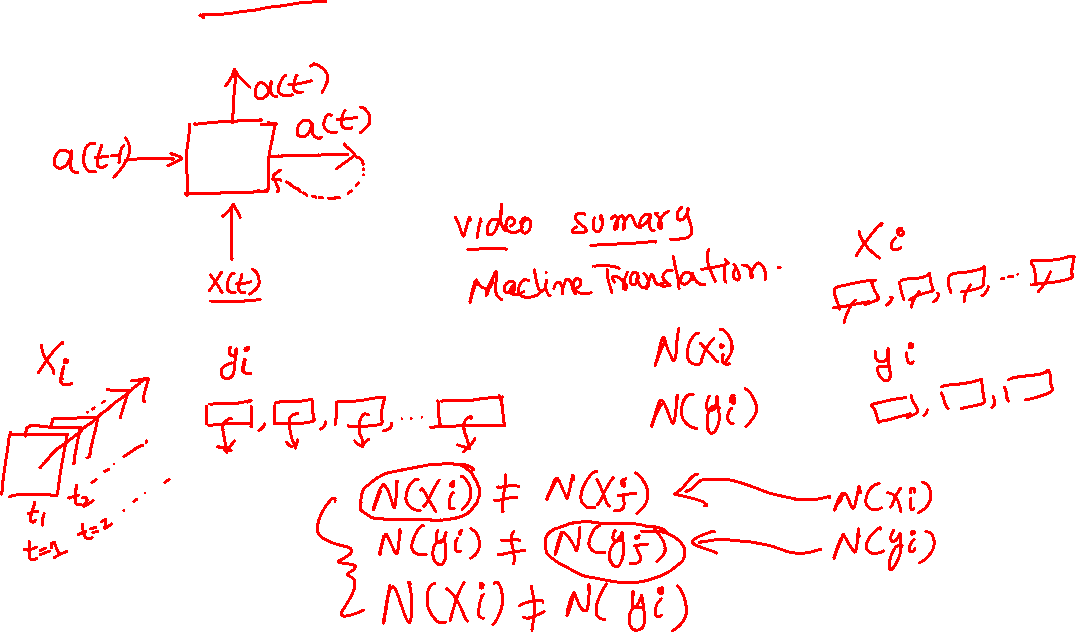 a(t)
a(t)
a(t-1)
x(t)
video sumary
Machine Translation.
Xi
, , , ...
N(Xi)
yi
N(yi)
, ,
Xi
yi
, , , ...
t1 t2 .....
t=1 t=2 ....
N(Xi) ≠ N(Xj) N(Xi)
N(yi) ≠ N(yj) N(yi)
N(Xi) ≠ N(yi)